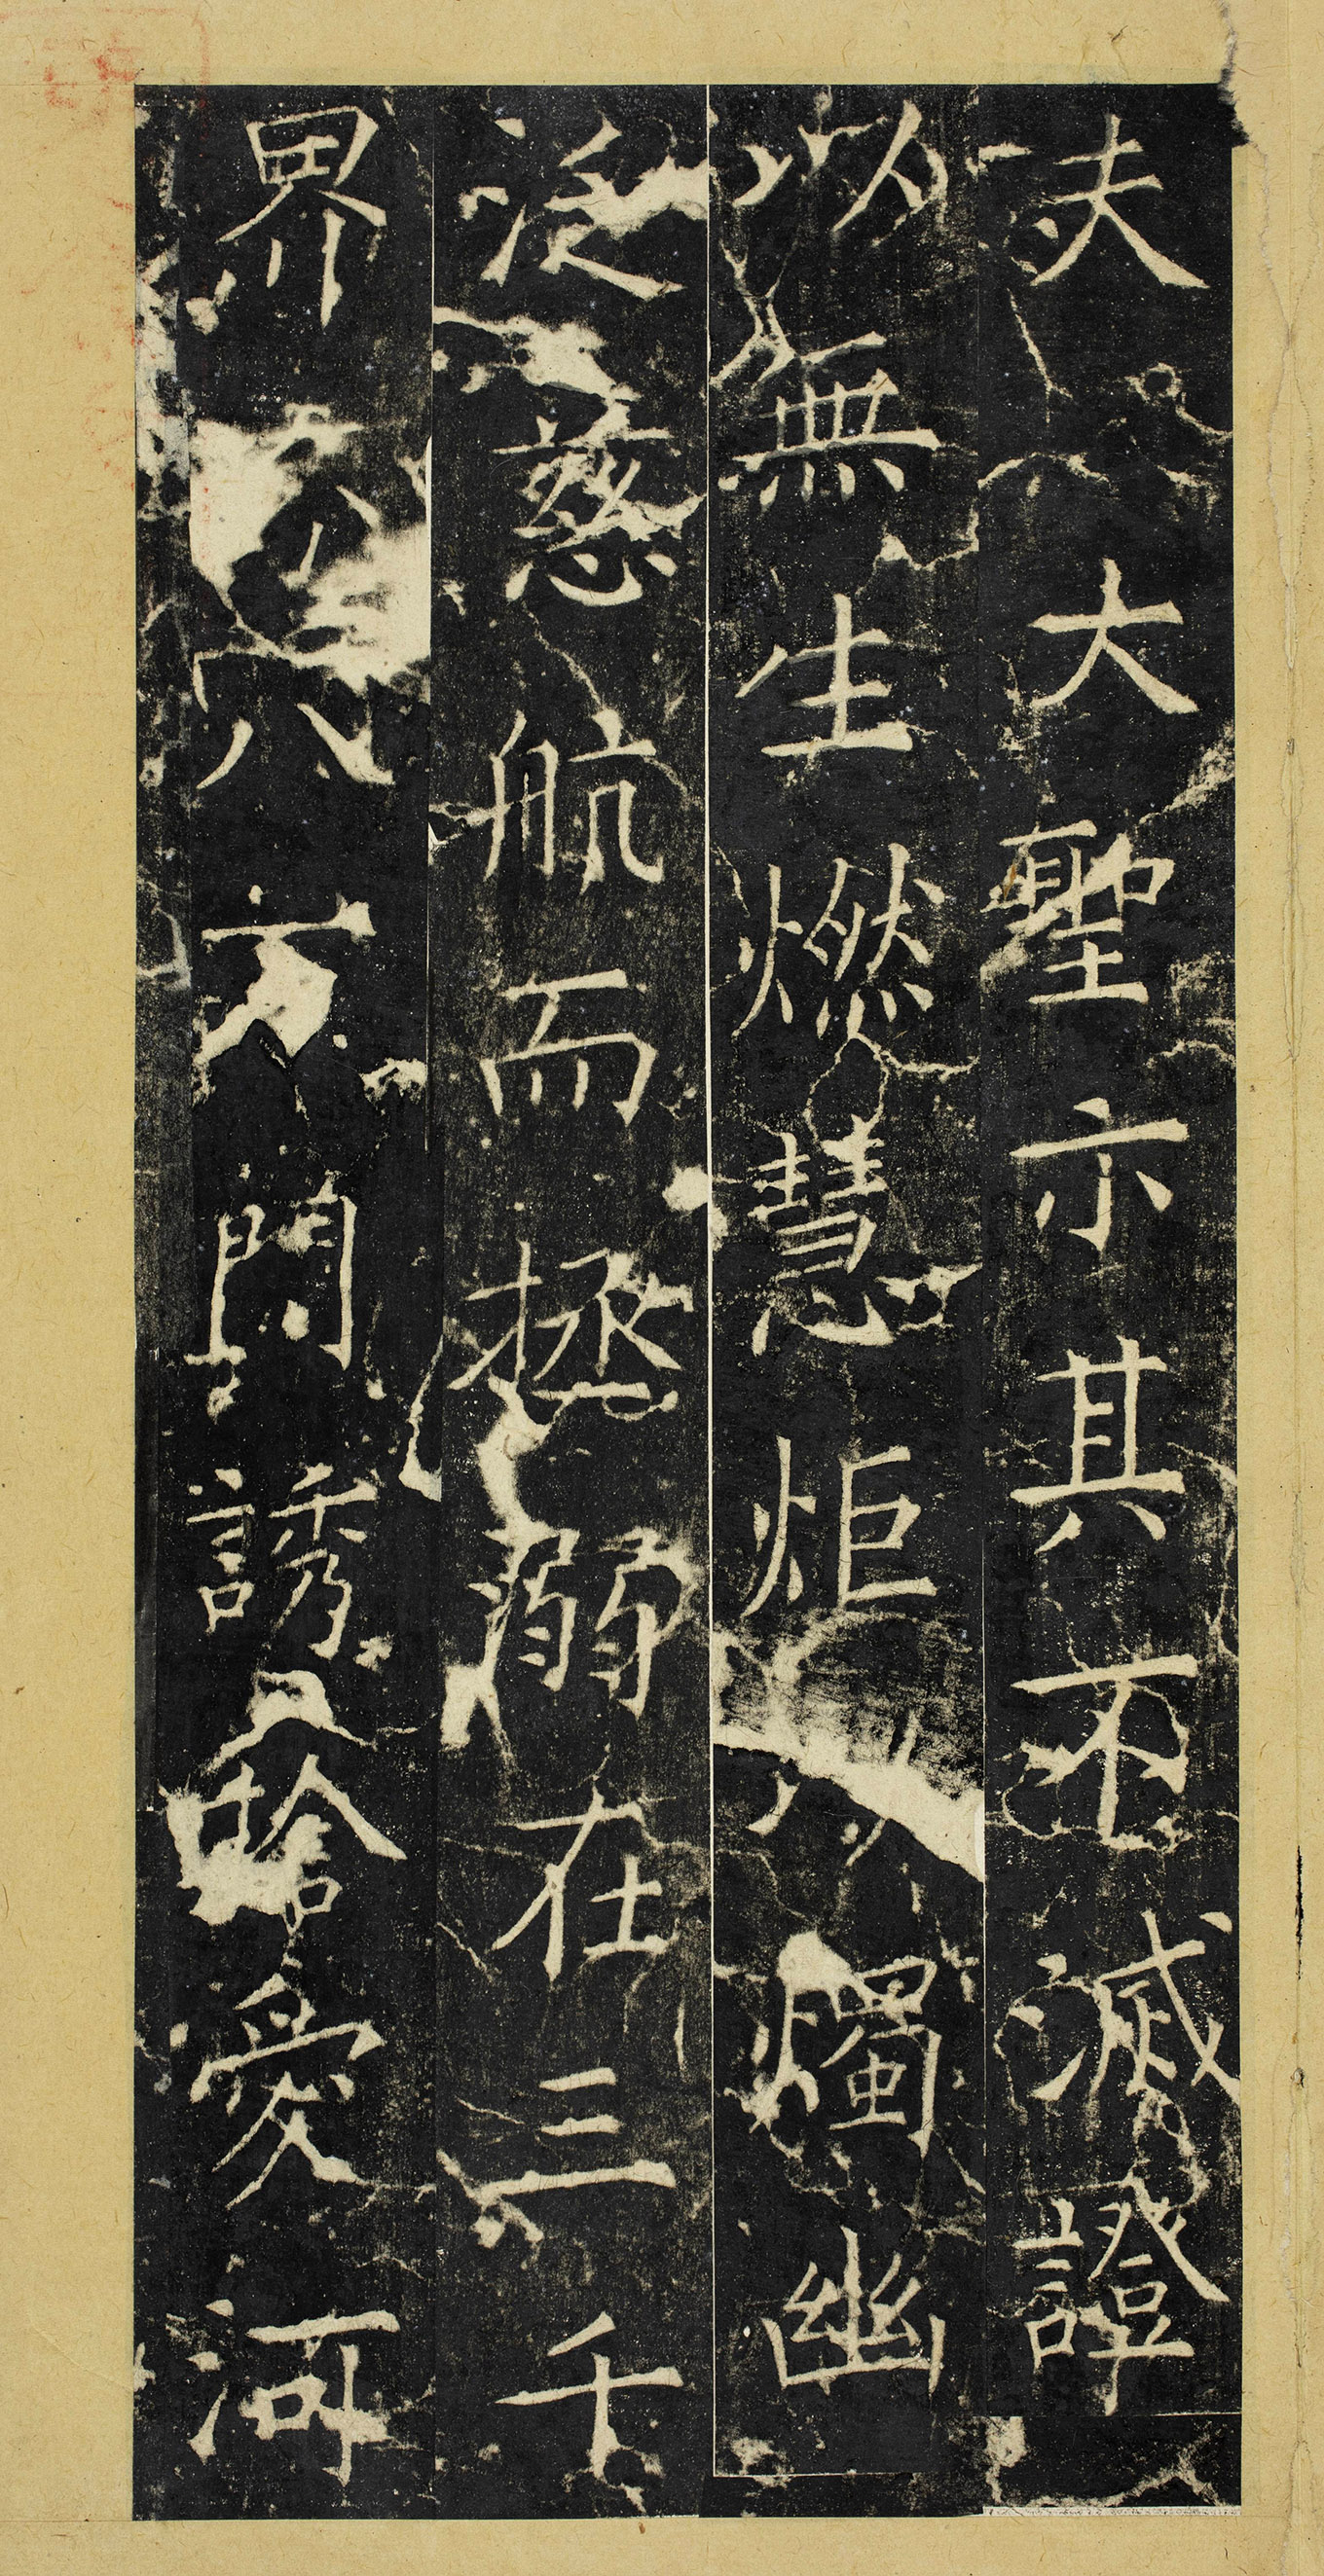 夫大聖示其不滅證
以無生燃慧炬燭幽
泛慈航而拯溺在三千
界八方門誘愛河